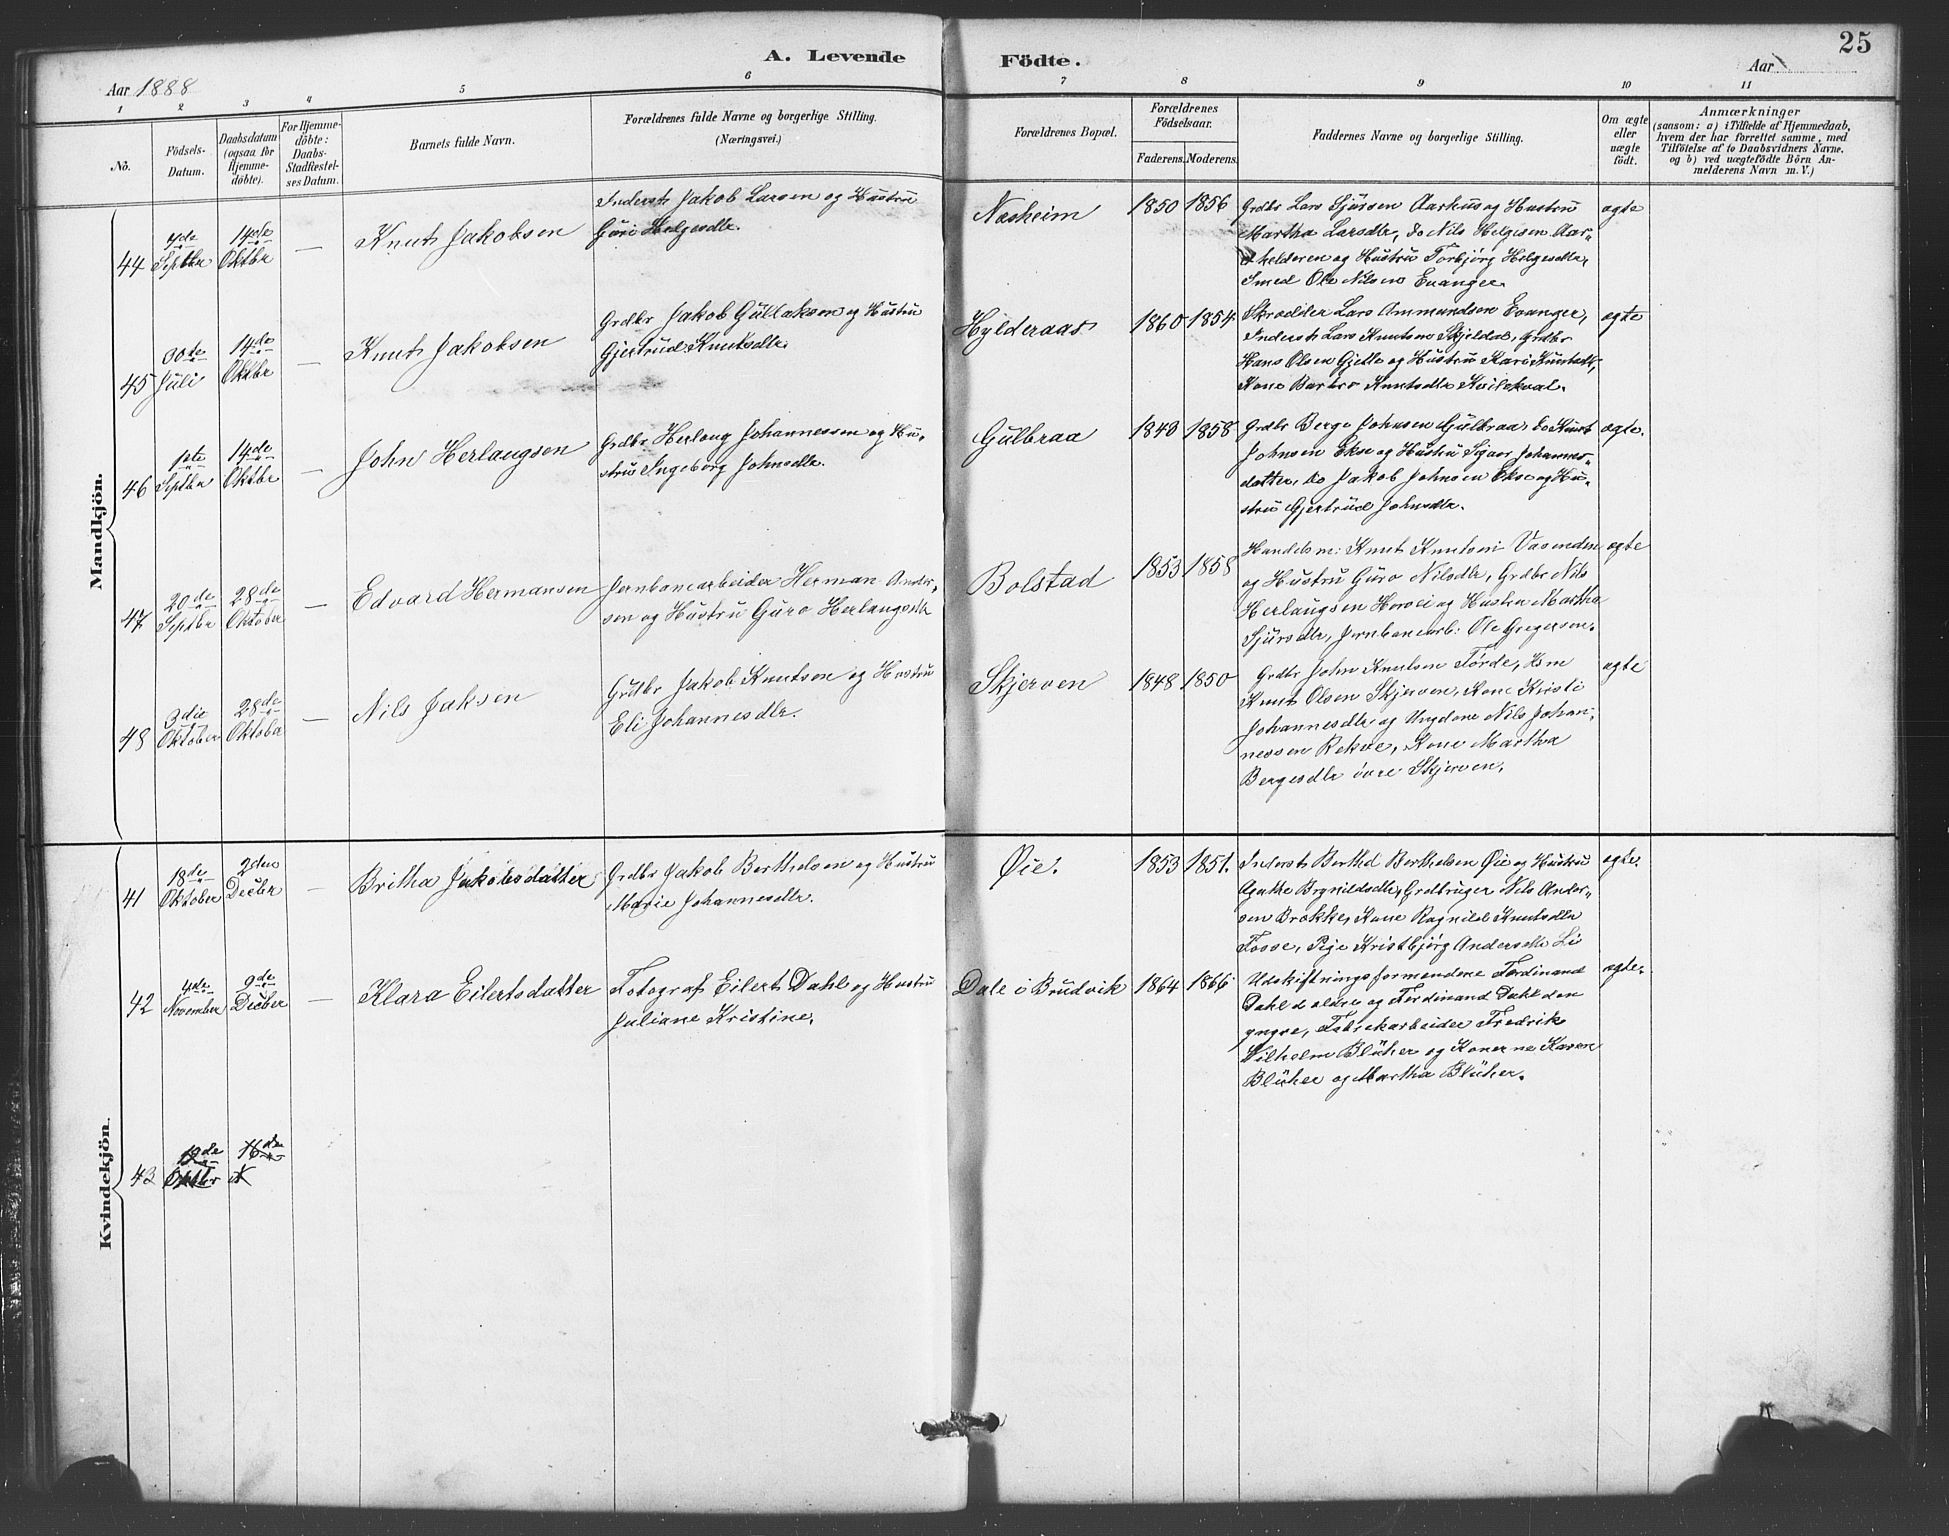 A. Levende Födte.
25
Aar 1888
Aar
1 2 3 4 5 6 7 8 9 10 11
No.
Födsels-
Datum.
Daabsdatum
(ogsaa for
Hjemme-
döbte).
For Hjemme-
döbte:
Daabs-
Stadfæstel-
ses Datum.
Barnets fulde Navn.
Forældrenes fulde Navne og borgerlige Stilling.
(Næringsvei.)
Forældrenes Bopæl.
Forældrenes
Födselsaar.
Faderens. Moderens.
Faddernes Navne og borgerlige Stilling.
Om ægte
eller
uægte
födt.
Anmærkninger
(sansom: a) i Tilfælde af Hjemmedaab,
hvem der har forrettet samme, med
Tilföielse af to Daabsvidners Navne,
og b) ved uægtefödte Börn An-
melderens Navn m. V.)
Mandkjön.
44
4de
Septbr
14de
Oktbr
—
Knut Jakobsen
Inderst Jakob Larsen og Hustru
Guri Helgesdtr.
Nasheim
1850 1856
Grdbr Lars Sjursen Aarhus og Hustru
Martha Larsdtr, do Nils Helgesen Aar-
helderen og Hustru Torbjörg Helgesdtr,
Smed Ole Nilsen Evanger.
ægte
45
30de
Juli
14de
Oktbr
—
Knut Jakobsen
Grdbr Jakob Gullaksen og Hustru
Gjertrud Knutsdtr.
Hylderaas
1860 1854
Skrædder Lars Ammundsen Evanger,
Inderst Lars Knutsen Skjeldal, Grdbr
Hans Olsen Gjelle og Hustru Kari Knutsdtr,
Kone Barbro Knutsdtr Kvilekval.
ægte
46
1ste
Septbr
14de
Oktbr
—
John Herlaugsen
Grdbr Herlaug Johannessen og Hu-
stru Ingeborg Johnsdtr.
Gulbraa
1848 1858
Grdbr Berge Johnsen Gulbraa, do Knut
Johnsen Ekse og Hustru Johannes-
datter, do Jakob Johnsen Ekse og Hu-
stru Gjertrud Johnsdtr.
ægte.
47
20de
Septbr
28de
Oktober
—
Edvard Hermansen
Jernbanearbeider Herman Ander-
sen og Hustru Guro Herlaugsdtr
Bolstad
1853 1858
Handelsm: Knut Knutsen Vasenden
og Hustru Guro Nilsdtr, Grdbr Nils
Herlaugsen Horvei og Hustru Martha
Sjursdtr, Jernbanearb: Ole Gregersen.
ægte
48
3die
Oktober
28de
Oktober
—
Nils Jaksen
Grdbr Jakob Knutsen og Hustru
Eli Johannesdtr.
Skjerven
1848 1850
Grdbr John Knutsen Förde, Hsm
Knut Olsen Skjerven, Kone Kristi
Johannesdtr og Ungdene Nils Johan-
nessen Rekve, Kone Martha
Bergesdtr övre Skjerven.
ægte
Kvindekjön.
41
18de
Oktober
2den
Decbr
—
Britha Jakobsdatter
Grdbr Jakob Berthelsen og Hustru
Marie Johannesdtr.
Öie.
1853 1851.
Inderst Berthel Berthelsen Öie og Hustru
Agathe Brynildsdtr, Grdbruger Nils Ander-
sen Brække, Kone Ragnild Knutsdtr
Fosse, Pige Kristbjörg Andersdtr Li
ægte.
42
4de
November
9de
Decber
—
Klara Eilertsdatter
Fotograf Eilert Dahl og Hustru
Juliane Kristine.
Dale i Brudvik
1864 1866.
Udskiftningsformændene Ferdinand
Dahl d ældre og Ferdinand Dahl den
yngre, Fabrikarbeider Fredrik
Wilhelm Blüher og Konerne Karen
Blüher og Martha Blüher.
ægte.
43
16de